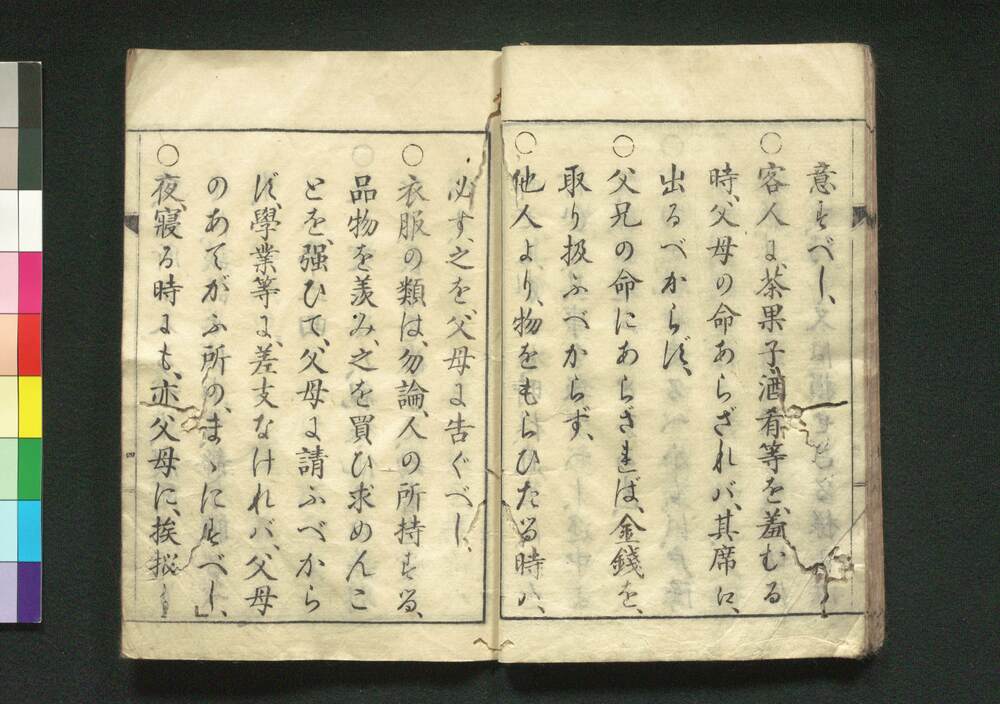 意すべし、
○客人に、茶果子、酒肴等を、羞むる
時、父母の命あらざれバ、其席に、
出るべからず、
○父兄の命にあらざれば、金錢を、
取り扱ふべからず、
○他人より、物をもらひたる時ハ、
必す、之を、父母に告ぐべし、
○衣服の類は、勿論、人の所持する、
品物を羨み、之を買ひ求めんこ
とを、强ひて、父母に請ふべから
ず、學業等に、差支なけれバ、父母
のあてがふ所の、まゝにすべし、
○夜、寢る時にも、亦父母に、挨拶
四